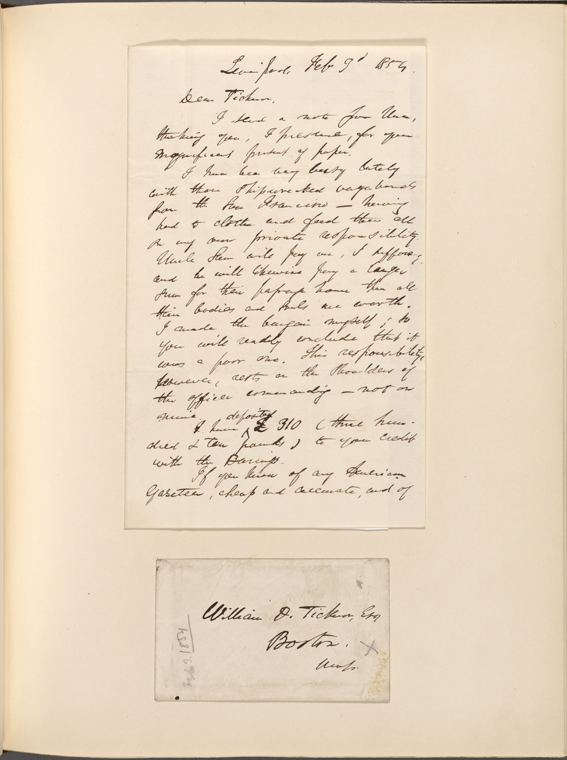 Liverpool, Feb 9d 1854.
Dear Ticknor,
I send a note from Una,
thanking you, I presume, for your
magnificent present of paper.
I have been very busy lately
with those shipwrecked vagabonds
from the San Francisco — having
had to clothe and feed them all
on my own private responsibility.
Uncle Sam will pay me, I suppose;
and he will likewise pay a larger
sum for their passage home than all
their bodies and souls are worth.
I made the bargain myself; so
you will readily conclude that it
was a poor one. This responsibility,
however, rests on the shoulders of
the officer commanding — not on
mine.
I have deposited £ 310 (three hun-
dred & ten pounds) to your credit
with the Barings.
If you know of any American
Gazetteer, cheap and accurate, and of
William D. Ticknor, Esq
Boston.
Mass.
Feb 9. 1854
X